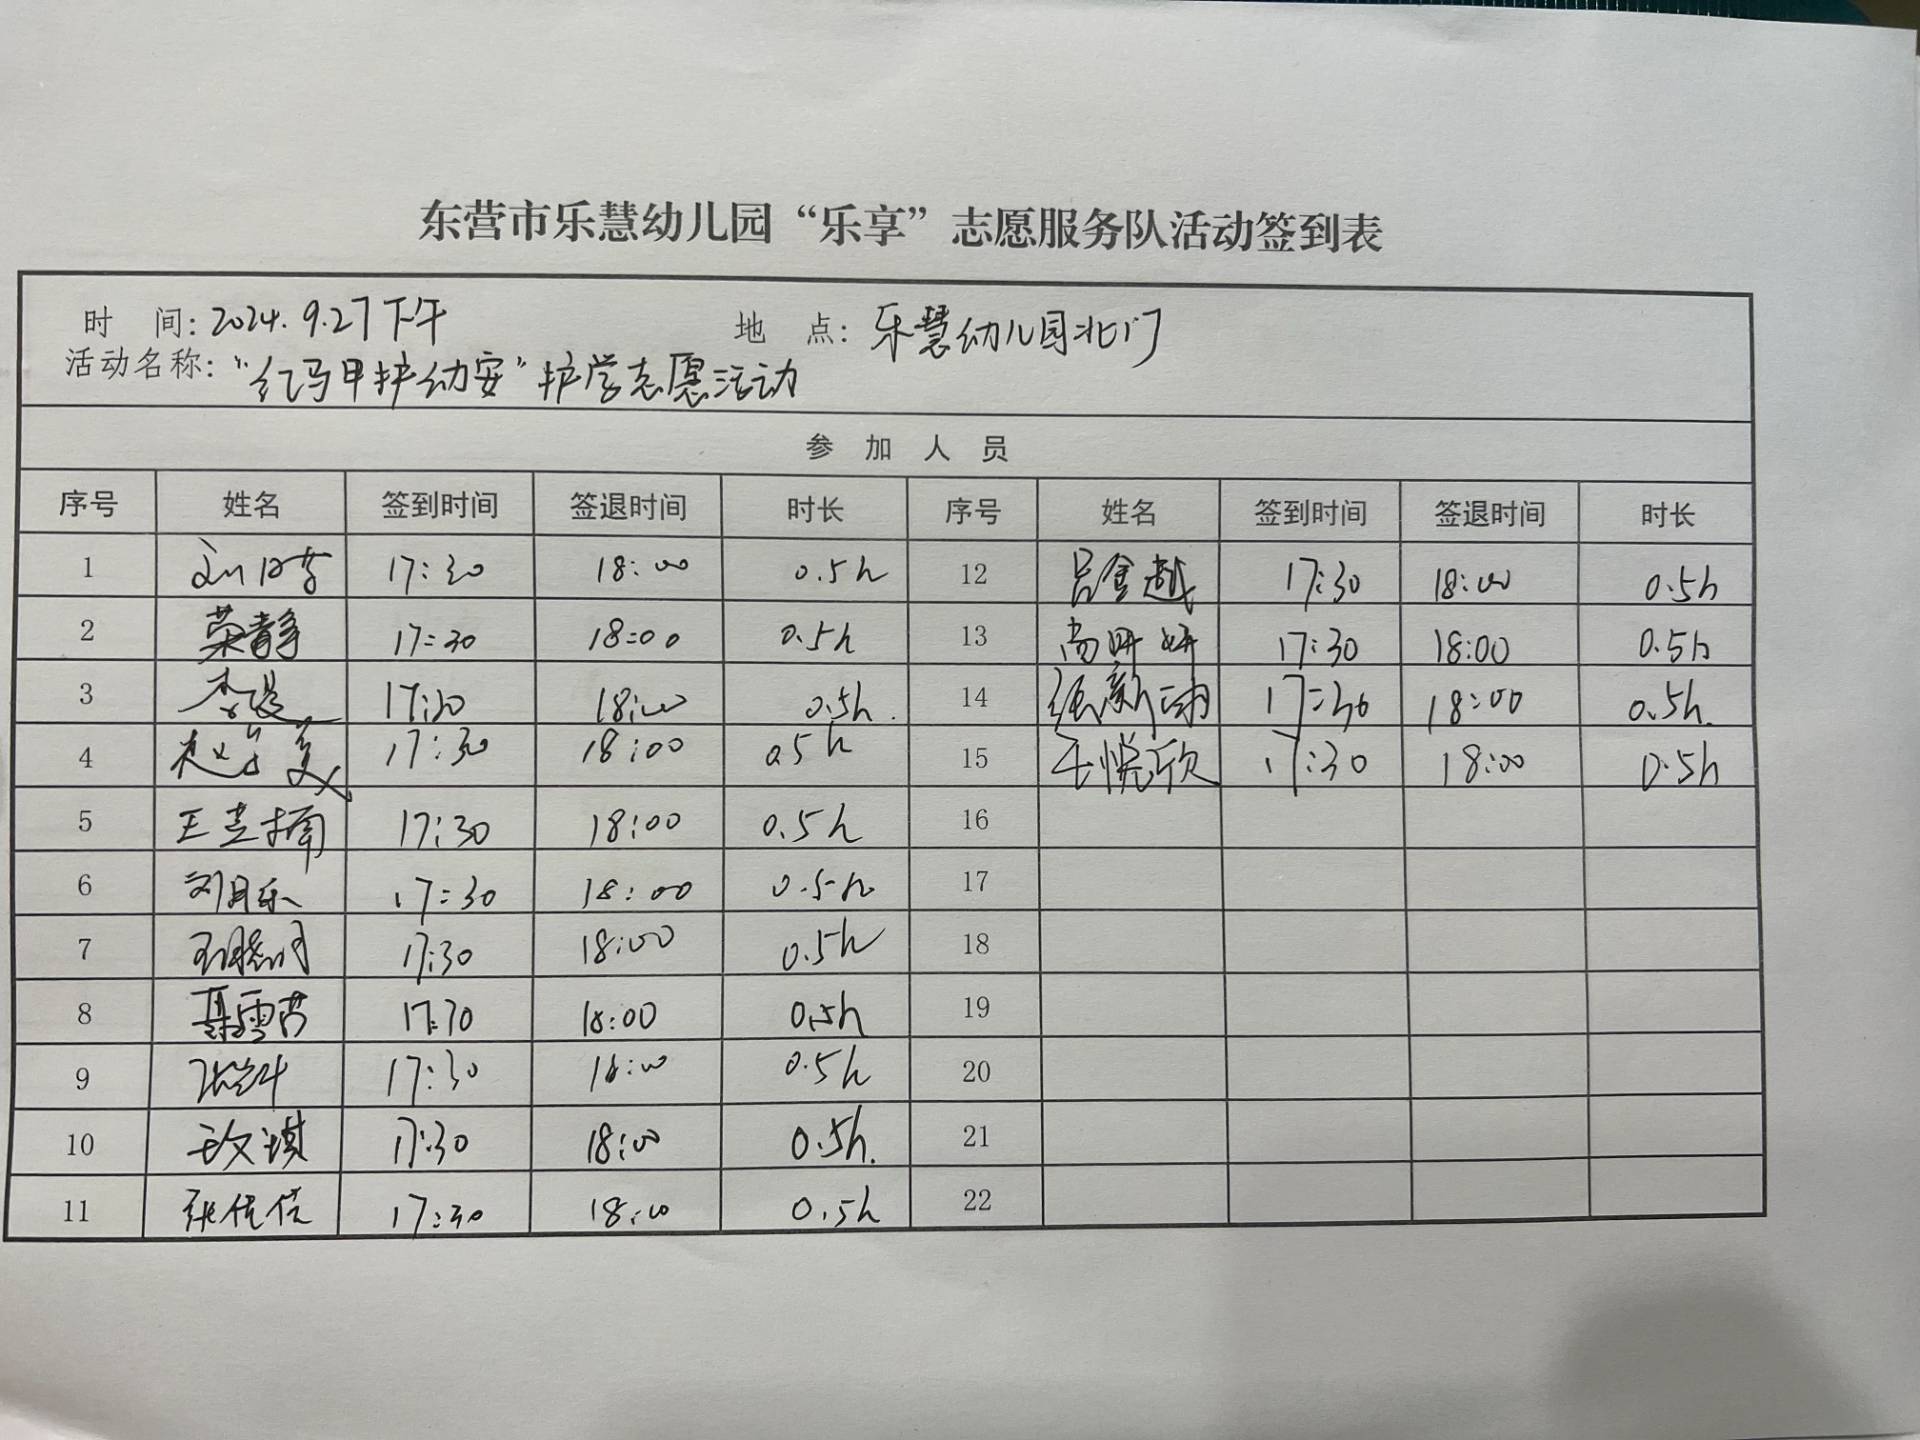 东营市乐慧幼儿园“乐享”志愿服务队活动签到表
时 间: 2024.9.27下午 地 点: 乐慧幼儿园北门
活动名称: “红马甲护幼安”护学志愿活动
参 加 人 员
序号 姓名 签到时间 签退时间 时长 序号 姓名 签到时间 签退时间 时长
1 17:30 18:00 0.5h 12 吕金越 17:30 18:00 0.5h
2 荣静 17:30 18:00 0.5h 13 尚妍妍 17:30 18:00 0.5h
3 李 17:30 18:00 0.5h. 14 17:30 18:00 0.5h.
4 17:30 18:00 0.5h 15 王悦欣 17:30 18:00 0.5h
5 王 17:30 18:00 0.5h 16
6 刘月乐 17:30 18:00 0.5h 17
7 17:30 18:00 0.5h 18
8 聂雪芹 17:30 18:00 0.5h 19
9 17:30 18:00 0.5h 20
10 17:30 18:00 0.5h. 21
11 张佳佳 17:30 18:00 0.5h 22